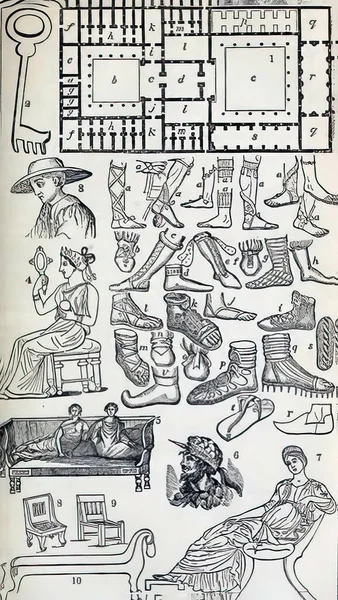 f h k m n q
i l
1
e b c d e r
2
g
g
g
j l
f h k m s q
3
a a a a a a
c e f g h
d
4
i k j
m n o s
v p q
t r
5
6
7
8 9
10